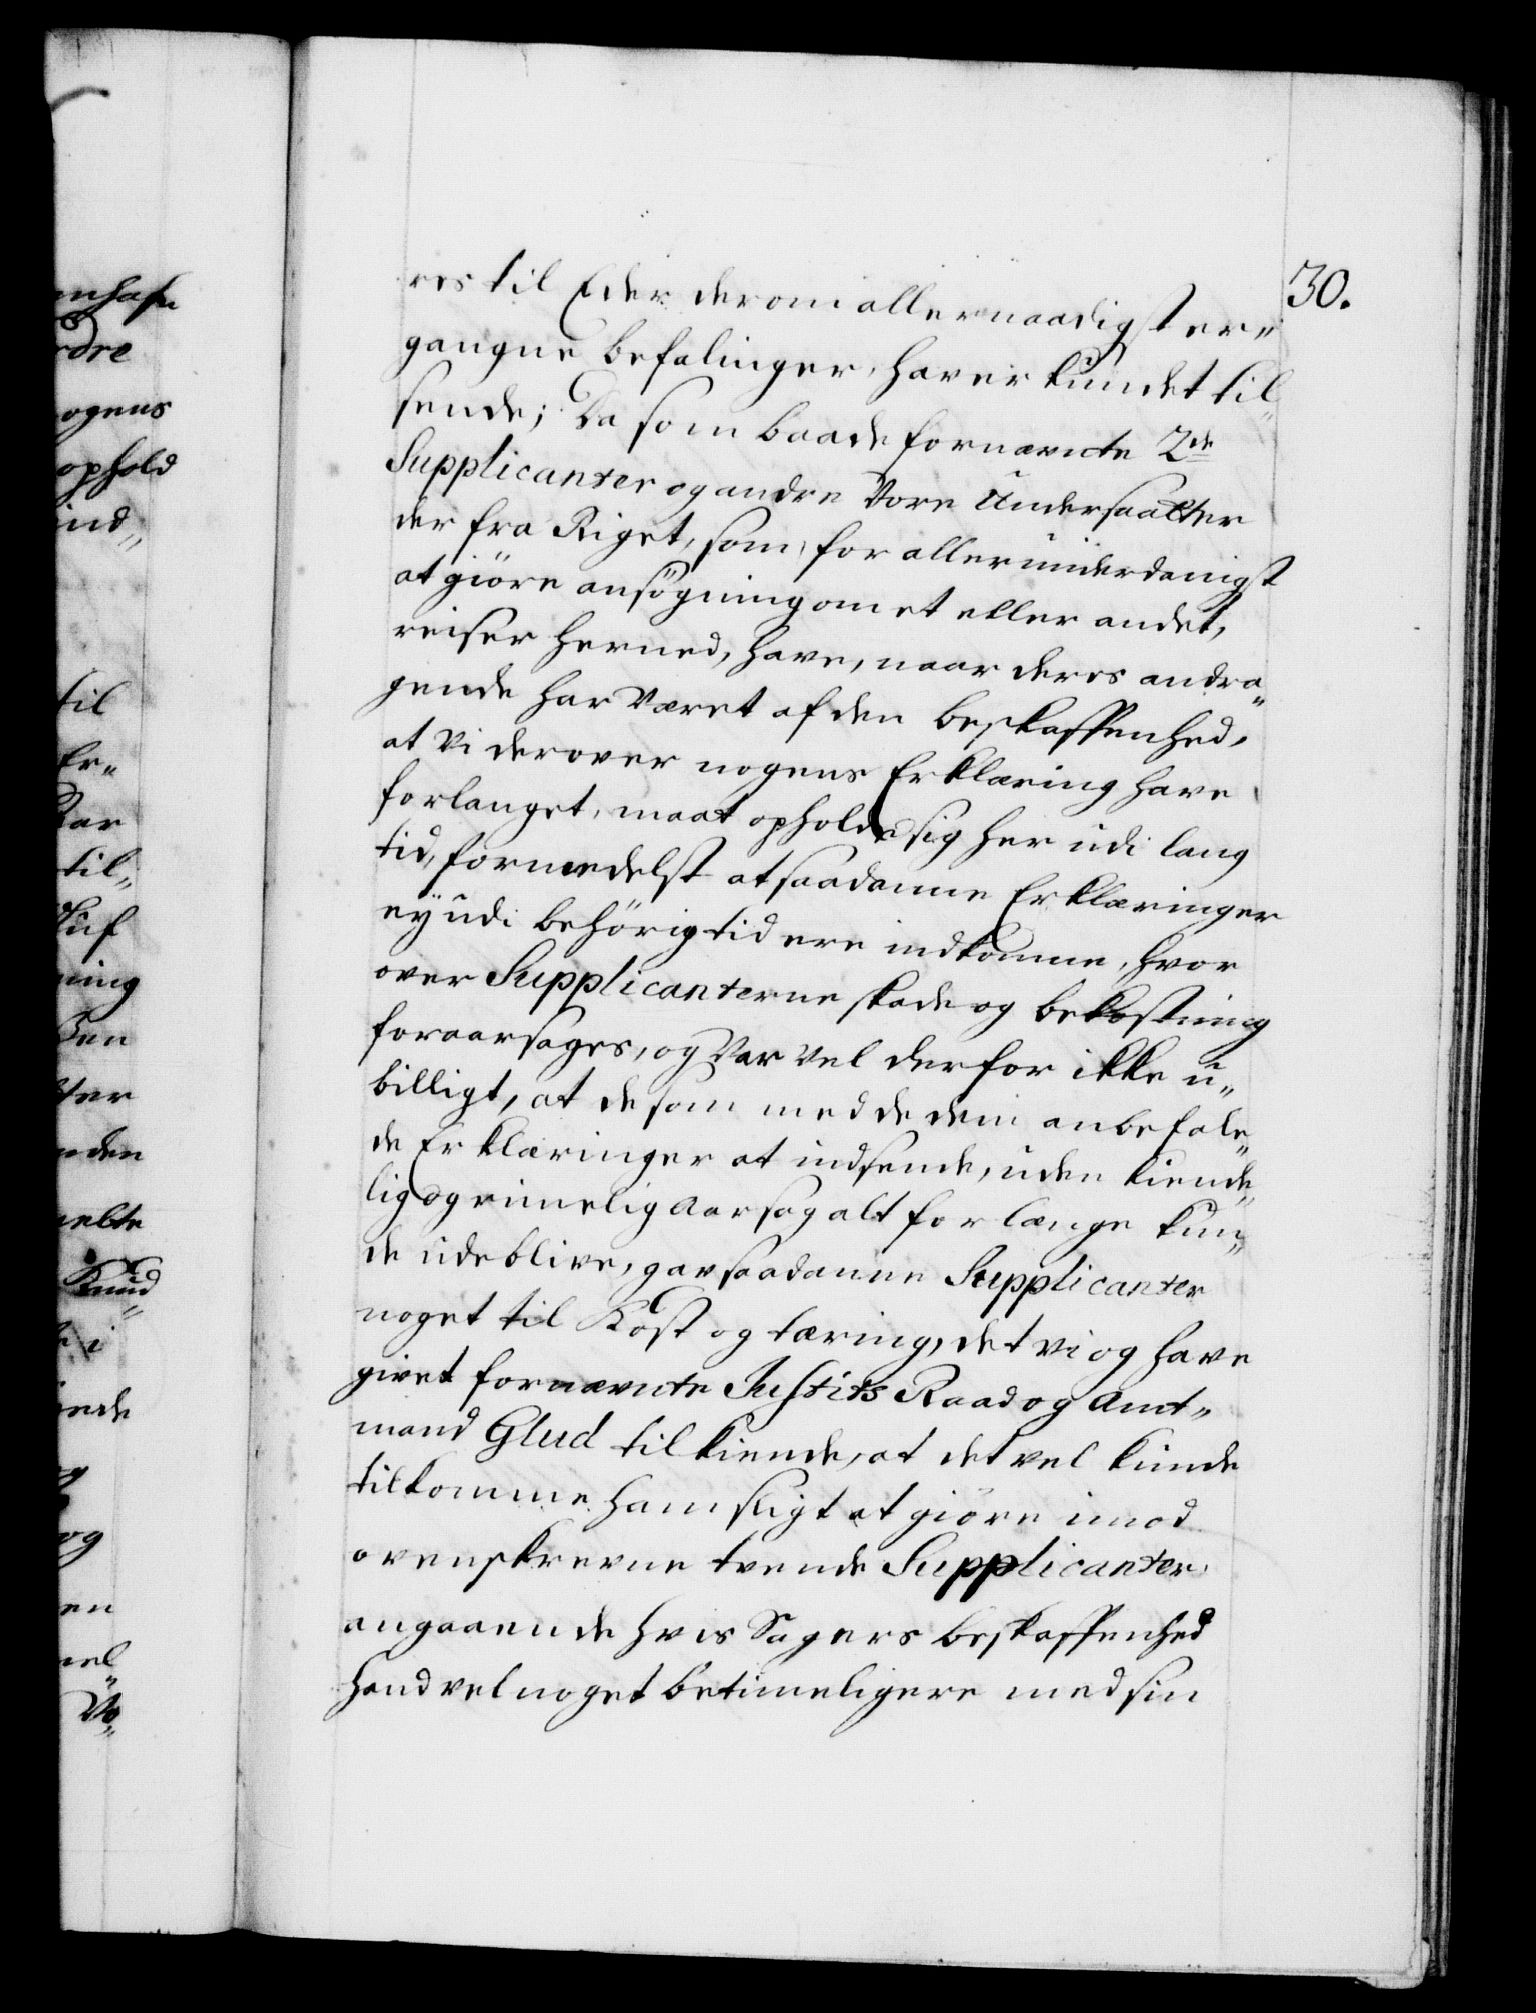 30.
res til Eder derom allernaadigst er„
gangne befalinger, haver kundet til„
sende; Da som baade fornævnte 2de
Supplicanter og andre Vore Undersaatter
der fra Riget, som, for allerunderdanigst
at giöre ansögning om et eller andet,
reiser herned, have, naar deres andra„
gende har været af den beskaffenhed,
at Vi derover nogens Erklæring have
forlanget, maat opholde sig her udi lang
tid, formedelst at saadanne Erklæringer
ey udi behörig tid ere indkomne, hvor
over Supplicanterne skade og bekostning
foraarsages, og Var Vel derfor ikke u„
billigt, at de som med de dem anbefale„
de Erklæringer at indsende, uden kiende„
lig og rimelig Aarsag alt for længe kun„
de udeblive, gav saadanne Supplicanter
noget til Kost og tæring, det vi og have
givet fornævnte Justits Raad og Amt„
mand Glud tilkiende, at det vel kunde
tilkomme ham sligt at giöre imod
ovenskrevne tvende Supplicanter,
angaaende hvis Sagers beskaffenhed
hand vel noget betimeligere med sin